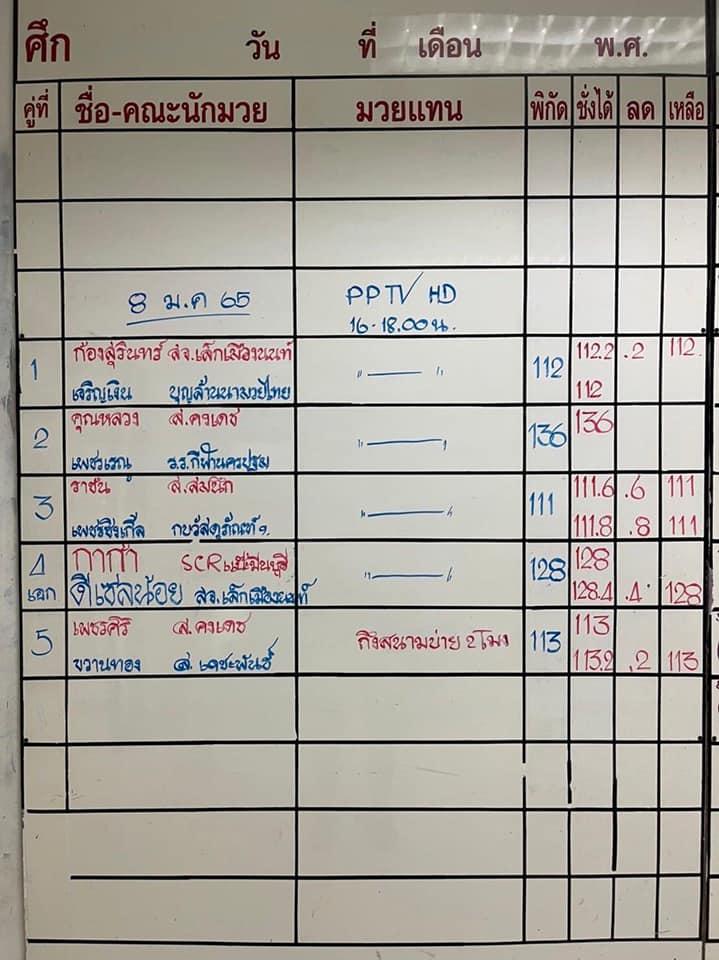 ศึก วัน ที่ เดือน พ.ศ.
คู่ที่ ชื่อ-คณะนักมวย มวยแทน พิกัด ชั่งได้ ลด เหลือ
8 ม.ค 65 PPTV HD
16-18.00 น.
1 ก้องสุรินทร์ สจ.เล็กเมืองนนท์ " ——— " 112 112.2 .2 112
เจริญเงิน บุญล้านนามวยไทย 112
2 คุณหลวง ส.คงเดช " ——— " 136 136
เพชรเรณู ร.ร.กีฬานครปฐม
3 ราชัน ส.สมนึก " ——— " 111 111.6 .6 111
กบวัสดุภัณฑ์ 111.8 .8 111
4 กาก้า SCRเเป๊ะมีนบุรี " ——— " 128 128
เอก ดีเซลน้อย สจ.เล็กเมืองนนท์ 128.4 .4 128
5 เพชรศิริ ส.คงเดช ถึงสนามบ่าย 2 โมง 113 113
ขวานทอง ส.เดชะพันธ์ 113.2 .2 113